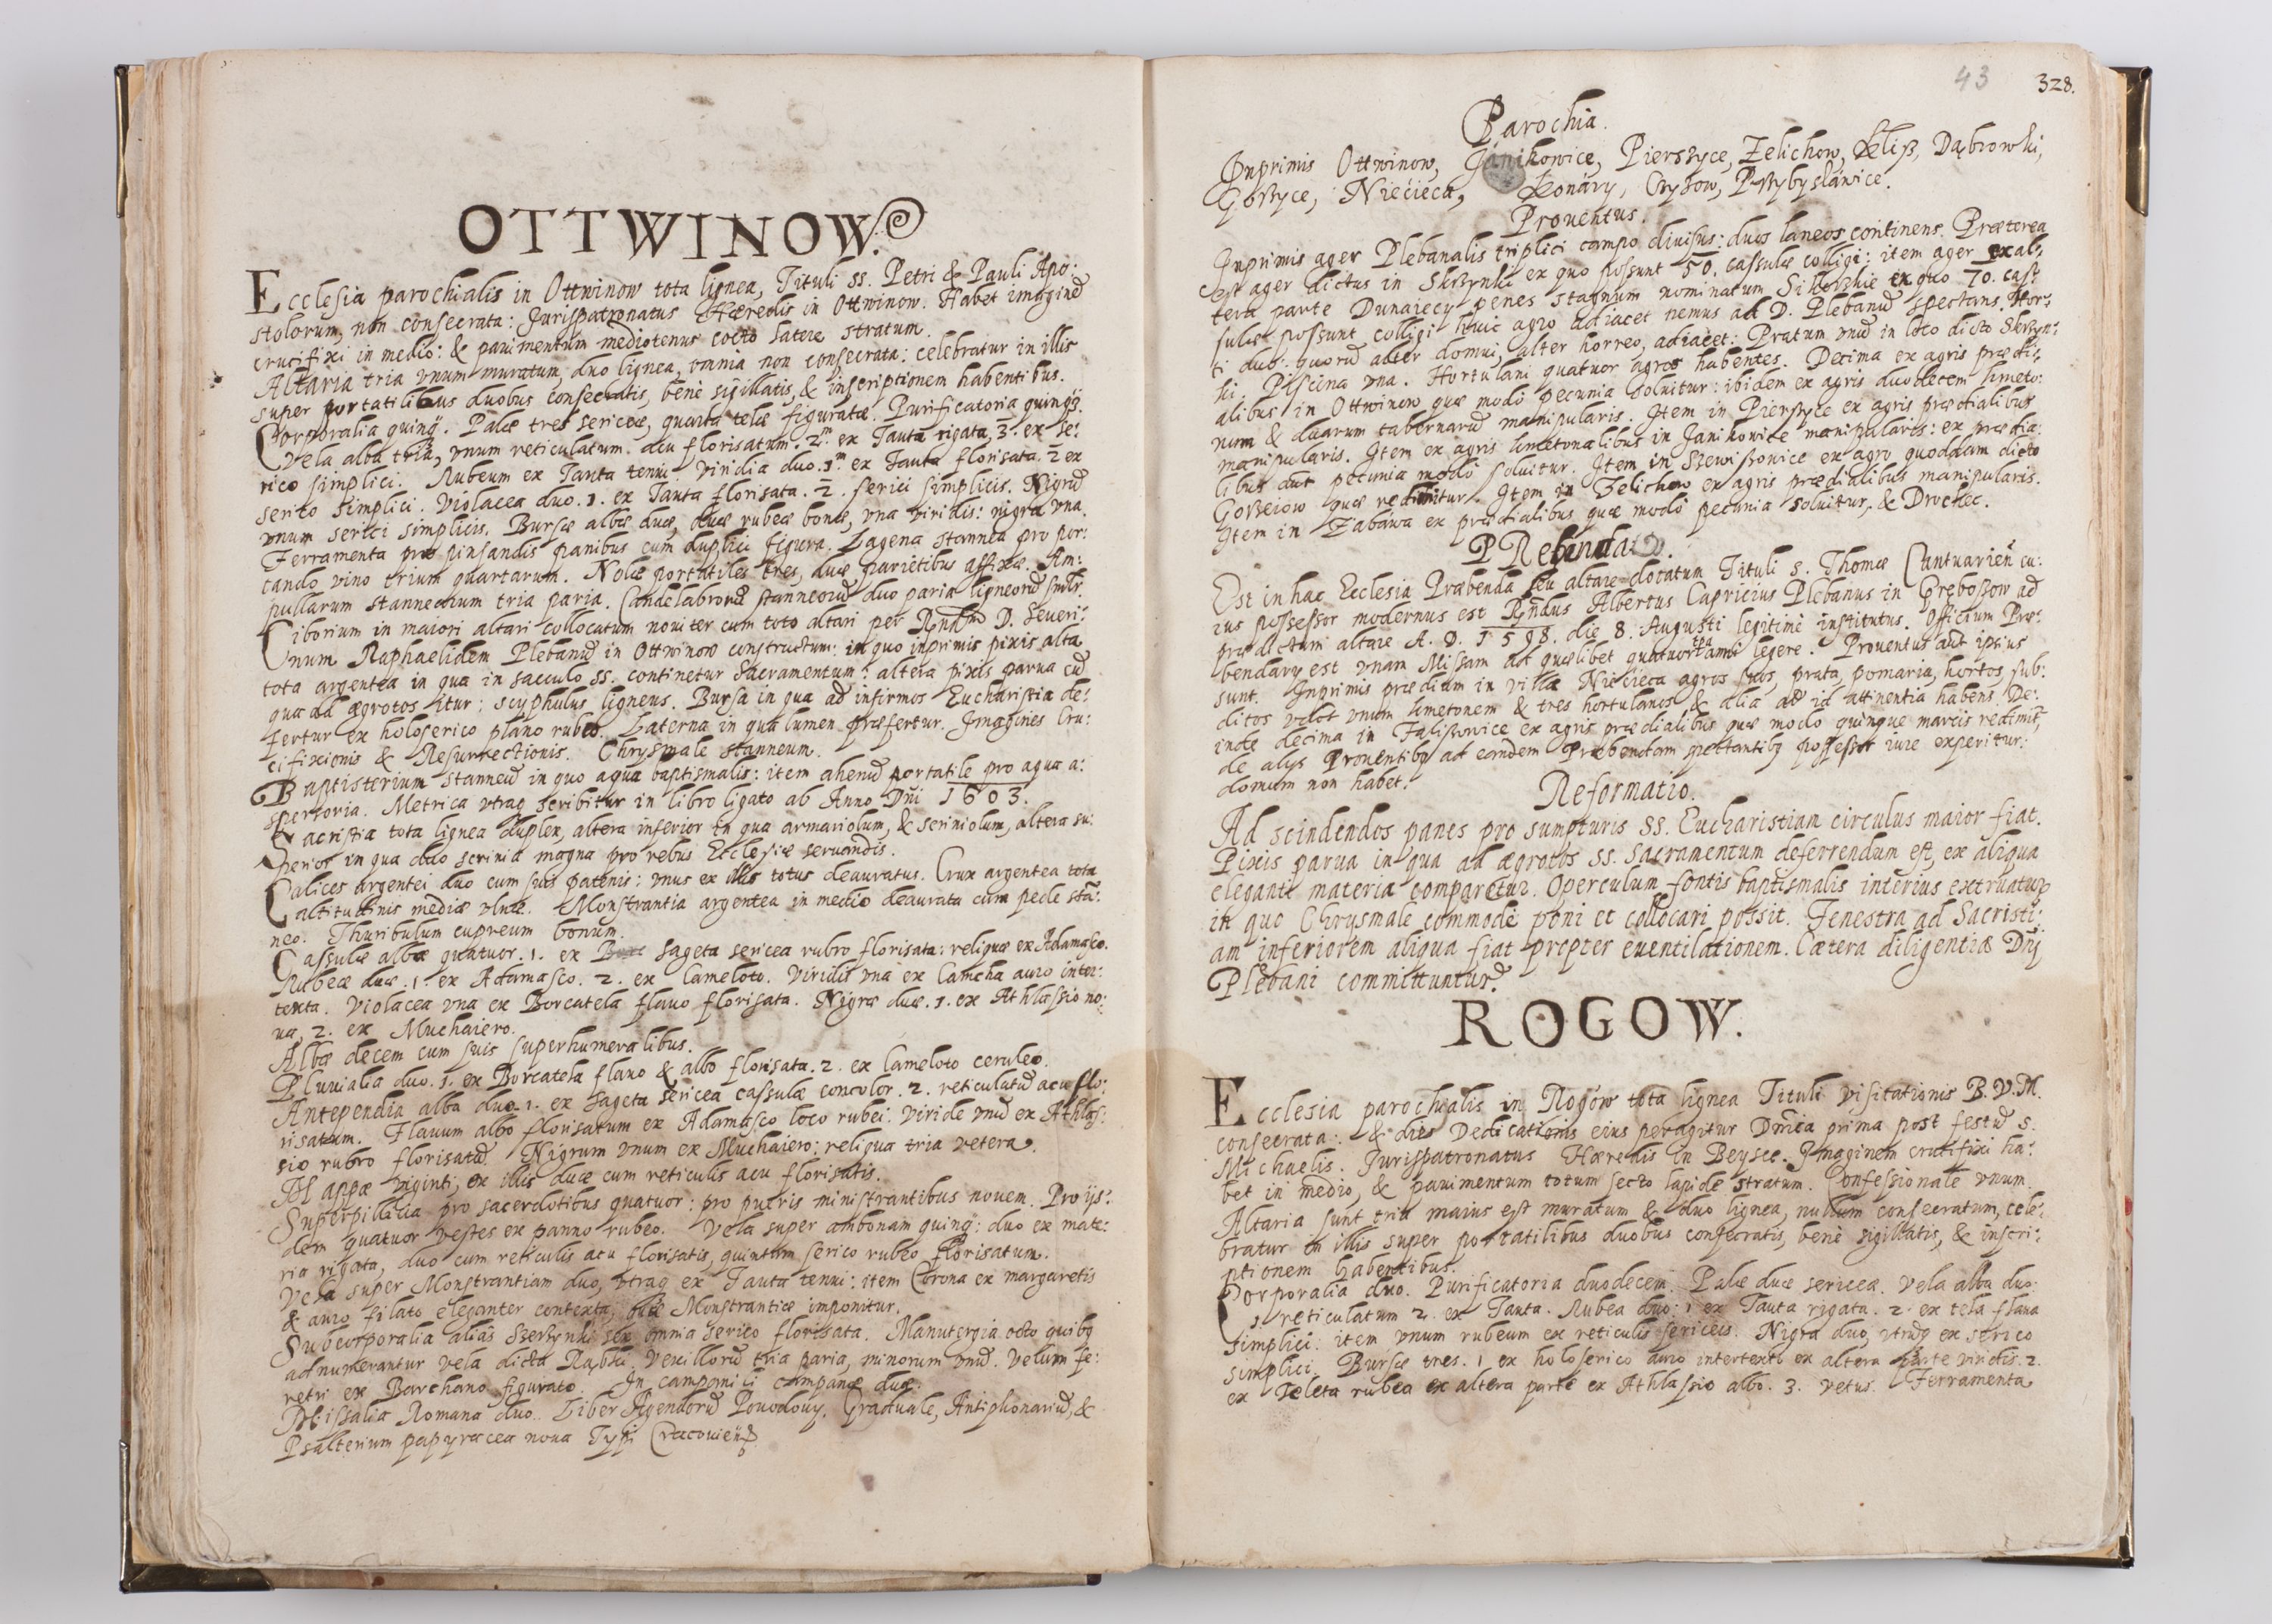 OTTWINOW.
Ecclesia parochialis in Ottwinow tota lignea, Tituli SS. Petri & Pauli Apo:
stolorum, non consecrata: Jurispatronatus Hæredis in Ottwinow. Habet imaginē
crucifixi in medio: & pauimentum mediotenus cocto latere stratum.
Altaria tria vnum muratum, duo lignea, omnia non consecrata: celebratur in illis
super portatilibus duobus consecratis, benè sigillatis, & inscriptionem habentibus.
Corporalia quinq̃. Palæ tres sericeæ, quarta telæ figuratæ. Purificatoria quinq̃.
Vela alba tria, vnum reticulatum acu florisatum. 2m ex Tauta rigata, 3. ex se:
rico simplici. Rubeum ex Tauta tenui. Viridia duo. 1m ex Tauta florisata. 2 ex
serico simplici. Violacea duo. 1. ex Tauta florisata. 2. serici simplicis. Nigrū
vnum serici simplicis. Bursæ albæ duæ, duæ rubeæ bonæ, vna viridis: nigra vna.
Ferramenta pro pinsandis panibus cum duplici figura. Lagena stannea pro por:
tando vino trium quartarum. Nolæ portatiles tres, duæ parietibus affixæ. Am:
pullarum stannearum tria paria. Candelabrorū stanneorū duo paria ligneorū
Ciborium in maiori altari collocatum nouiter cum toto altari per Rndum D. Seueri:
num Raphaelidem Plebanū in Ottwinow constructum: in quo inprimis pixis alta
tota argentea in qua in sacculo SS. continetur Sacramentum: altera pixis parua cū
qua ad ægrotos itur: scyphulus ligneus. Bursa in qua ad infirmos Eucharistia de:
fertur ex holoserico plano rubeo. Laterna in qua lumen præfertur. Imagines Cru:
cifixionis & Resurrectionis. Chrysmale stanneum.
Baptisterium stanneū in quo aqua baptismalis: item ahenū portatile pro aqua a:
spersoria. Metrica vtraq̃ scribitur in libro ligato ab Anno Dni 1603.
Sacristia tota lignea duplex, altera inferior in qua armariolum, & scriniolum, altera su:
perior in qua duo scrinia magna pro rebus Ecclesiæ seruandis.
Calices argentei duo cum suis patenis: vnus ex illis totus deauratus. Crux argentea tota
altitudinis mediæ vlnæ. Monstrantia argentea in medio deaurata cum pede stan:
neo. Thuribulum cupreum bonum.
Cassulæ albæ quatuor. 1. ex Sageta sericea rubro florisata: reliquæ ex Adamasco.
Rubeæ duæ. 1. ex Adamasco. 2. ex Cameloto. Viridis vna ex Camcha auro inter:
texta. Violacea vna ex Borcatela flauo florisata. Nigræ duæ. 1. ex Athlassio no:
ua, 2. ex Muchaiero.
Albæ decem cum suis superhumeralibus.
Pluuialia duo. 1. ex Borcatela flauo & albo florisata. 2. ex Cameloto ceruleo.
Antependia alba duo. 1. ex Sageta sericea cassulæ concolor. 2. reticulatū acu flo:
risatum. Flauum albo florisatum ex Adamasco loco rubei. Viride vnū ex Athlas:
sio rubro florisatū. Nigrum vnum ex Muchaiero: reliqua tria vetera.
Mappæ viginti, ex illis duæ cum reticulis acu florisatis.
Superpillicia pro sacerdotibus quatuor: pro pueris ministrantibus nouem. Pro ijs:
dem quatuor vestes ex panno rubeo. Vela super ambonam quinq̃: duo ex mate:
ria rigata, duo cum reticulis acu florisatis, quintum serico rubeo florisatum.
Vela super Monstrantiam duo, vtraq̃ ex Tauta tenui: item Corona ex margaretis
& auro filato eleganter contexta, quæ Monstrantiæ imponitur.
Subcorporalia aliàs Szerzynki sex omnia serico florisata. Manutergia octo quibq
adnumerantur vela dicta Rąbki. Vexillorū tria paria, minorum vnū. Velum fe:
retri ex Barchano figurato. In campanili campanæ duæ.
Missalia Romana duo. Liber Agendorū Powodouy. Graduale, Antiphonariū, &
Psalterium papyracea noua Typi Cracouien̄
43 328.
Parochia.
Inprimis Ottwinow, Janikowice, Pierszyce, Zelichow, Kliß, Dąbrowki,
Gorzyce, Niećieca, Konáry, Czyżow, Przybysłáwice.
Prouentus.
Inprimis ager Plebanalis triplici campo diuisus: duos laneos continens. Præterea
est ager dictus in Skrzynki ex quo possunt 50. cassulæ colligi: item ager ex al:
tera parte Dunaiecy penes stagnum nominatum Sikorskie ex quo 70. cas:
sulæ possunt colligi huic agro adiacet nemus ad D. Plebanū spectans. Hor:
ti duo: quorū alter domui, alter horreo, adiacet: Pratum vnū in loco dicto Skrzyn:
ki. Piscina vna. Hortulani quatuor agros habentes. Decima ex agris prædi:
alibus in Ottwinow quæ modò pecunia soluitur: ibidem ex agris duodecem kmeto:
num & duarum tabernarū manipularis. Item in Pierszyce ex agris prædialibus
manipularis. Item ex agris kmetonalibus in Janikowice manipularis: ex prædia:
libus aut pecunia modò soluitur. Item in Szewißowice ex agro quoddam dicto
Goßeiow quæ redimitur. Item in Zelichow ex agris prædialibus manipularis.
Item in Zabawa ex prædialibus quæ modò pecunia soluitur, & Drochec.
PRebenda.
Est in hac Ecclesia Præbenda seu altare dotatum Tituli S. Thomæ Cantuarien̄ cu:
ius possessor modernus est Rndus Albertus Capricius Plebanus in Gręboßow ad
prædictum altare A. D. 1598. die 8. Augusti legitimè institutus. Officium Præ:
bendary est vnam Missam ad quælibet quatuor tpa anni legere. Prouentus aut ipsius
sunt. Inprimis prædium in villa Niećieca agros suos, prata, pomaria, hortos, sub:
ditos vdot vnum kmetonem & tres hortulanos & alia ad id attinentia habens. De:
inde decima in Falißowice ex agris prædialibus quæ modo quinque marcis redimit̃,
de alijs Prouentibq ad eandem Præbendam spectantibq possessor iure experitur:
domum non habet.
Reformatio.
Ad scindendos panes pro sumpturis SS. Eucharistiam circulus maior fiat.
Pixis parua in qua ad ægrotos SS. Sacramentum deferrendum est, ex aliqua
eleganti materia comparetur. Operculum fontis baptismalis interius extruatur
in quo Chrysmale commodè poni et collocari possit. Fenestra ad Sacristi:
am inferiorem aliqua fiat propter euentilationem. Cætera diligentiæ Dnj
Plebani committuntur.
ROGOW.
Ecclesia parochialis in Rogow tota lignea Tituli Visitationis B. V. M.
consecrata: & dies Dedicationis eius peragitur Dnica prima post festū S.
Michaelis. Jurispatronatus Hæredis in Beysce. Imaginem crucifixi ha:
bet in medio, & pauimentum totum secto lapide stratum. Confessionale vnum.
Altaria sunt tria maius est muratum & duo lignea, nullum consecratum, cele:
bratur in illis super portatilibus duobus consecratis, benè sigillatis, & inscri:
ptionem habentibus.
Corporalia duo. Purificatoria duodecem. Palæ duæ sericea. Vela alba duo:
1 reticulatum 2. ex Tauta. Rubea duo: 1 ex Tauta rygata. 2. ex tela flaua
simplici: item vnum rubeum ex reticulis sericeis. Nigra duo, vtrūq ex serico
simplici. Bursæ tres. 1 ex holoserico auro intertexti ex altera parte viridis. 2.
ex Teleta rubea ex altera parte ex Athlassio albo. 3. vetus. Ferramenta